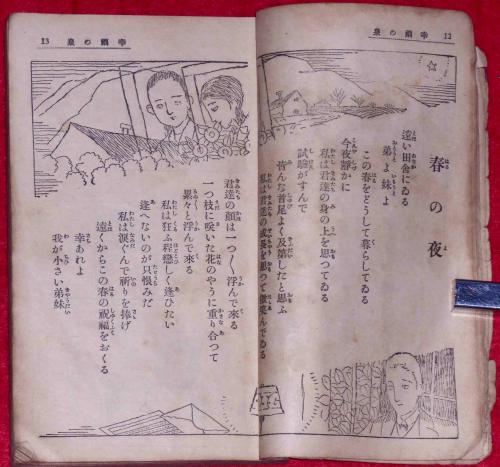 12 幸福の泉
春の夜
遠い田舎にゐる
弟よ妹よ
この春をどうして暮らしてゐる
今夜静かに
私は君達の身の上を思つてゐる
試験がすんで
皆んな首尾よく及第したと思ふ
私は君達の成長を思つて微笑んでゐる
幸福の泉 13
君達の顔は一つ〳〵浮んで來る
一つ枝に咲いた花のやうに重り合つて
累々と浮んで來る
私は狂ふ程戀しく逢ひたい
逢へないのが只恨みだ
私は涙ぐんで祈りを捧げ
遠くからこの春の祝福をおくる
幸あれよ
我が小さい弟妹